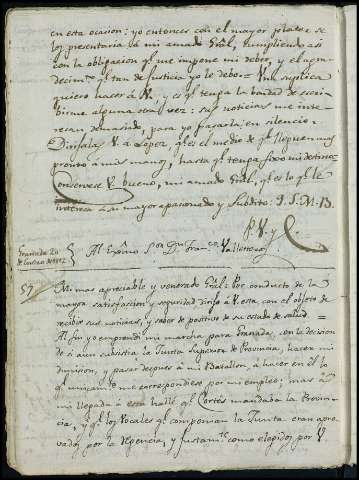 en esta ocasion: yo entonces con el mayor placer se
los presentaria à mi amado Gral, cumpliendo asi
con la obligacion qe me impone mi deber, y el agra-
decimto qe tan de justicia yo le debo = Una suplica
quiero hacer à V. y es qe tenga la bondad de escri-
birme alguna otra vez: sus noticias me inte-
resan demasiado, para yo pasarla en silencio.
Dirijalas V. a Lopez, qe es el medio de qe lleguen mas
pronto à mis manos, hasta qe tenga fixo mi destino
Conservese V. bueno, mi amado Gral, qe es lo qe le
interesa à su mayor apasionado y Subdito: J. J. M. B.
P. V. y
Granada 20
de 1812
Al Exmo Sor Dn Franco Vallesteros
57
Mi mas apreciable y venerado Gral: Por conducto de la
mayor satisfaccion y seguridad dirijo à V. esta, con el objeto de
recibir sus noticias, y saber de positivo de su estado de salud.
Al fin yo emprendi mi marcha para Granada, con la decision
de si aun subsistia la Junta Superior de Provincia, hacer mi
dimision, y pasar despues à mi Batallon, à hacer en èl lo
qe unicamte me correspondiese por mi empleo; mas à
mi llegada à esta hallè qe Cortès mandaba la Provin-
cia, y qe los Vocales qe componian la Junta eran apro-
vados por la Regencia, y justamte como elegidos por V.